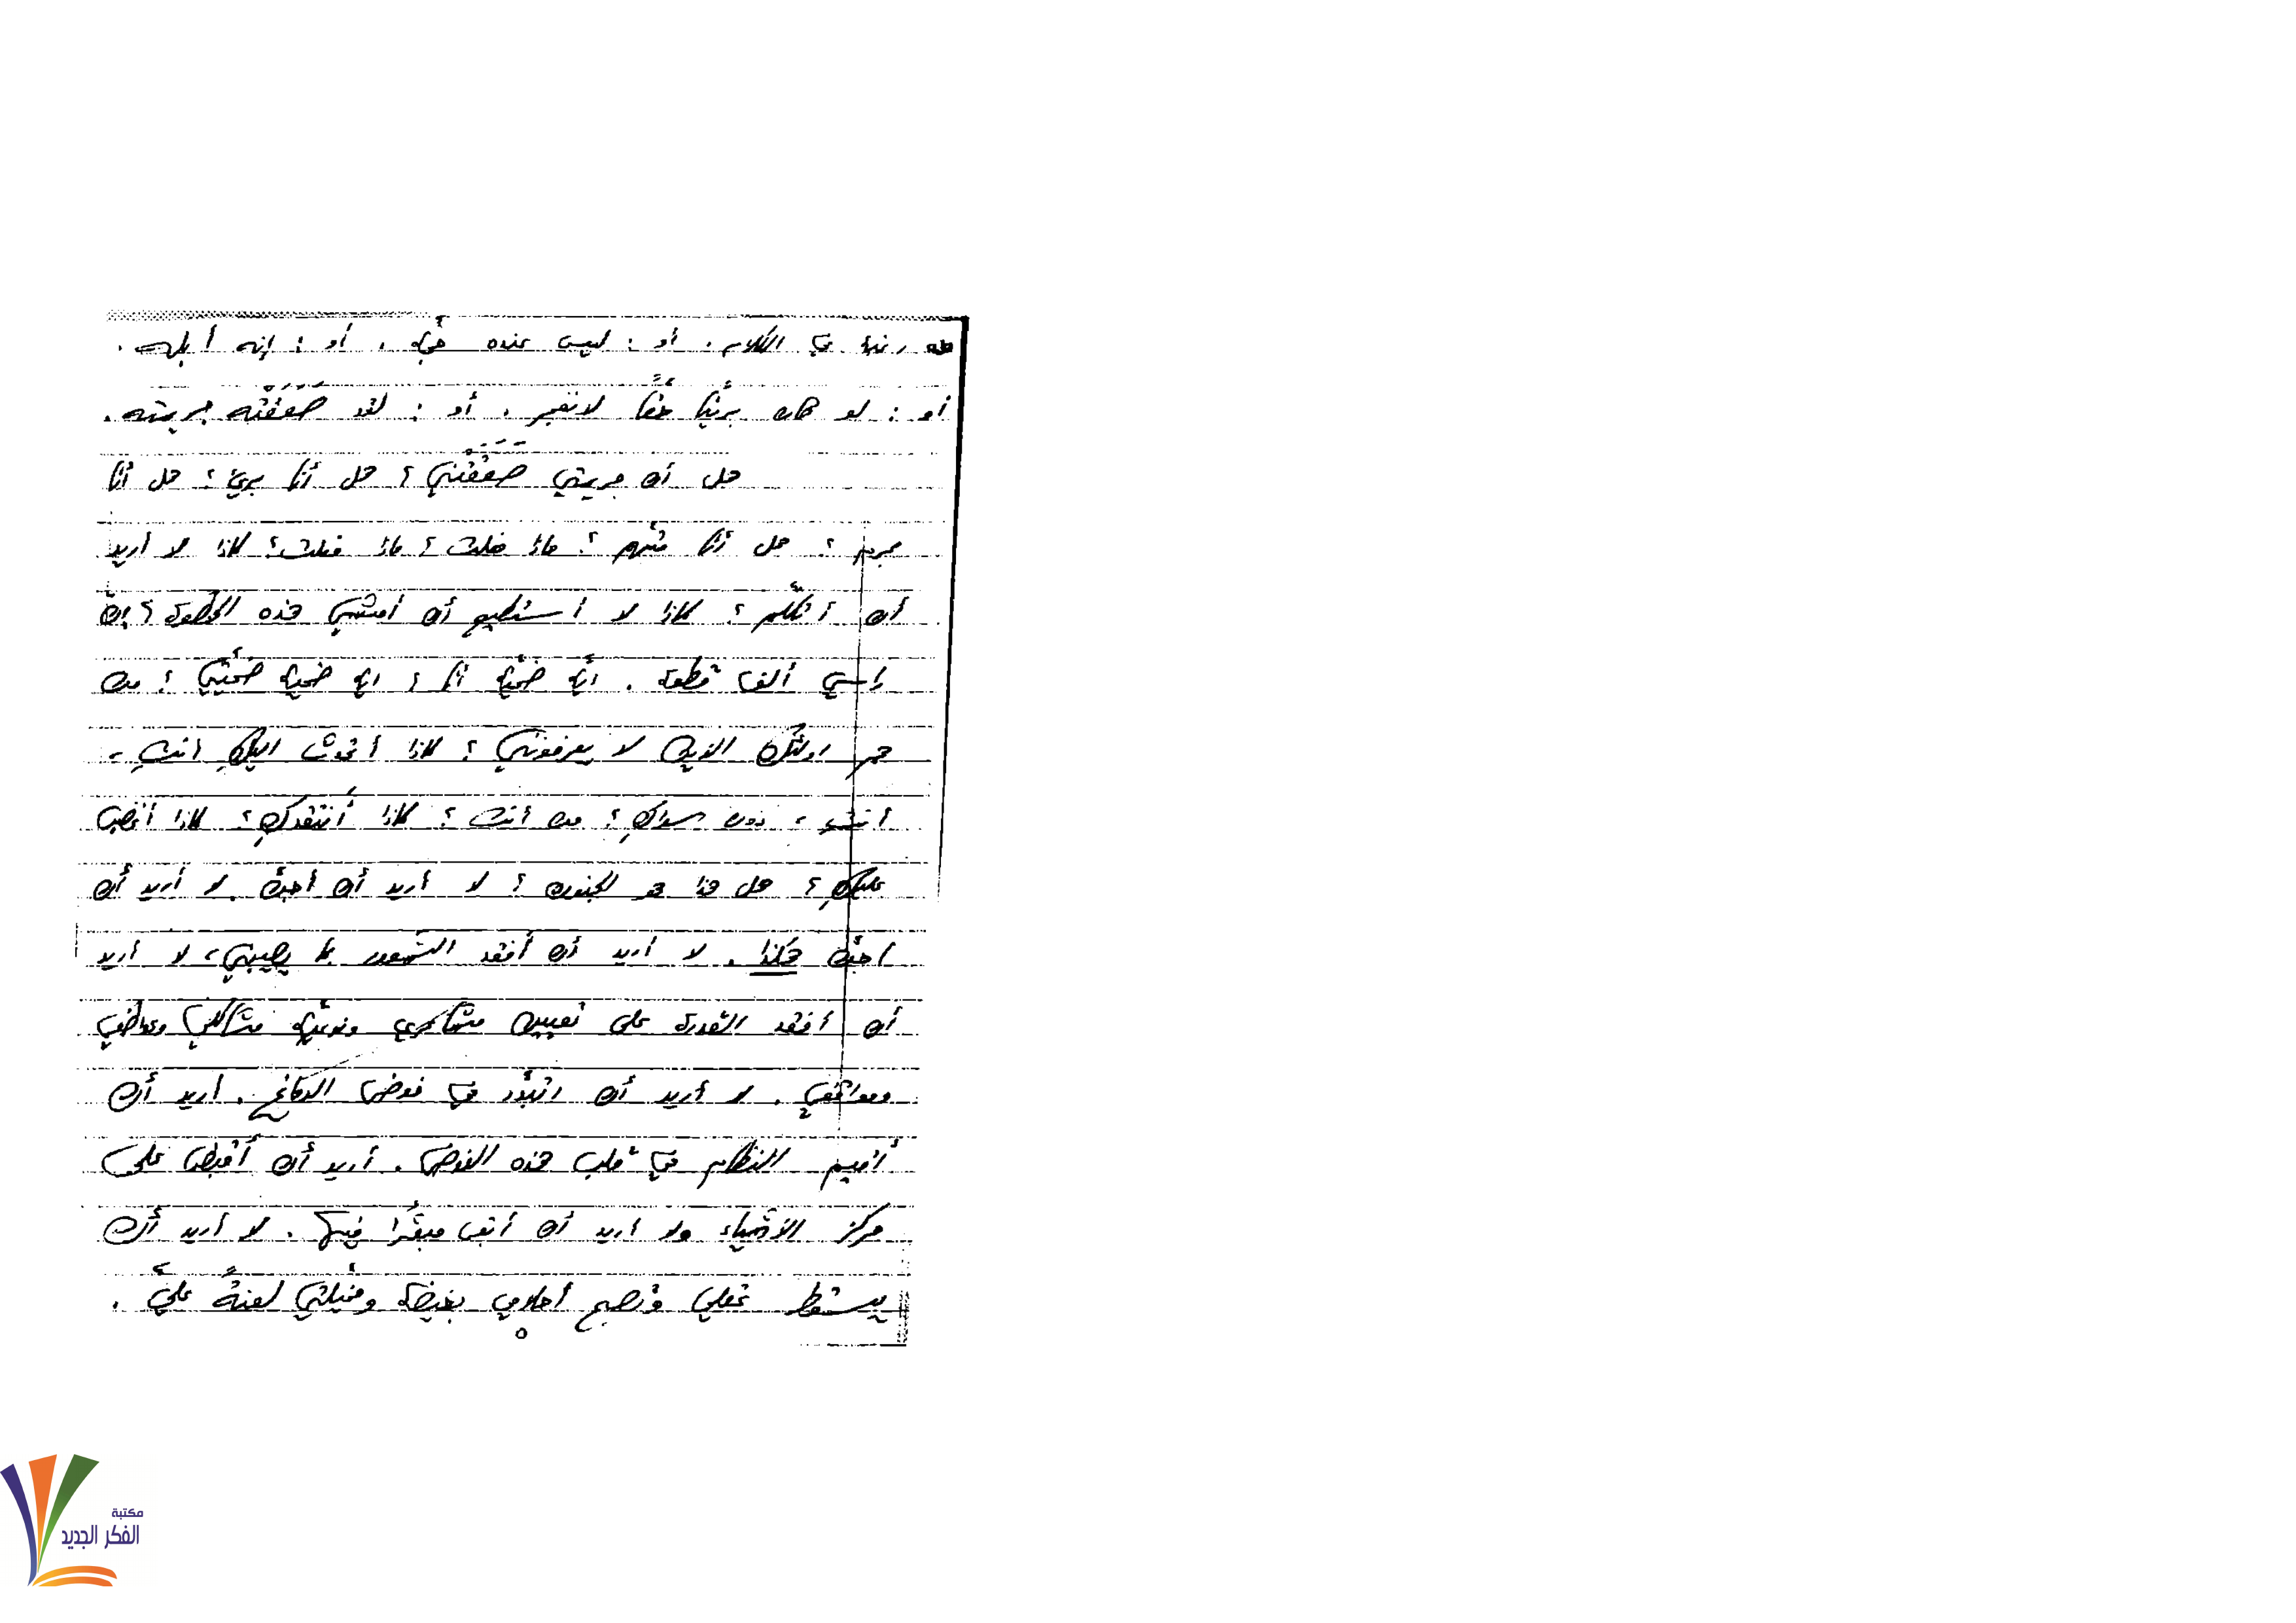 رغبة في الكلام. أو : ليس عنده حجّة. أو : إنه أبله.
أو : لو كان بريئًا حقًّا لانفجر. أو : لقد صَعَقَتْه جريمته.
هل أن جريمتي صَعَقَتْني ؟ هل أنا بريء ؟ هل أنا
مجرم ؟ هل أنا متّهم ؟ ماذا فعلت ؟ ماذا فعلت ؟ لماذا لا أريد
أن أتكلّم ؟ لماذا لا أستطيع أن أمشي هذه الخطوة ؟ إنّ
رأسي ألف قطعة. أيّة ضحيّة أنا ؟ أية ضحية ضحيّتي ؟ من
هم أولئك الذين لا يعرفونني ؟ لماذا أتحدث إليكِ أنتِ،
أنتِ، دون سواكِ ؟ من أنتِ ؟ لماذا أنتقدكِ ؟ لماذا أغضب
عليكِ ؟ هل هذا هو الجنون ؟ لا أريد أن أُجنّ. لا أريد أن
أُجنّ هكذا. لا أريد أن أفقد الشعور بما يصيبني، لا أريد
أن أفقد القدرة على تعيين مشاعري ونوعيّة مشاكلي وعواطفي
ومواقفي. لا أريد أن أتبدّد في فوضى الدماغ. أريد أن
أقيم النظام في قلب هذه الفوضى. أريد أن أقبض على
مركز الأشياء ولا أريد أن أبقى مبعثرًا فيها. لا أريد أن
يسقط عقلي وتصبح أحلامي بغيضة ومخيّلتي لعنةً عليّ.
مكتبة
الفكر الجديد